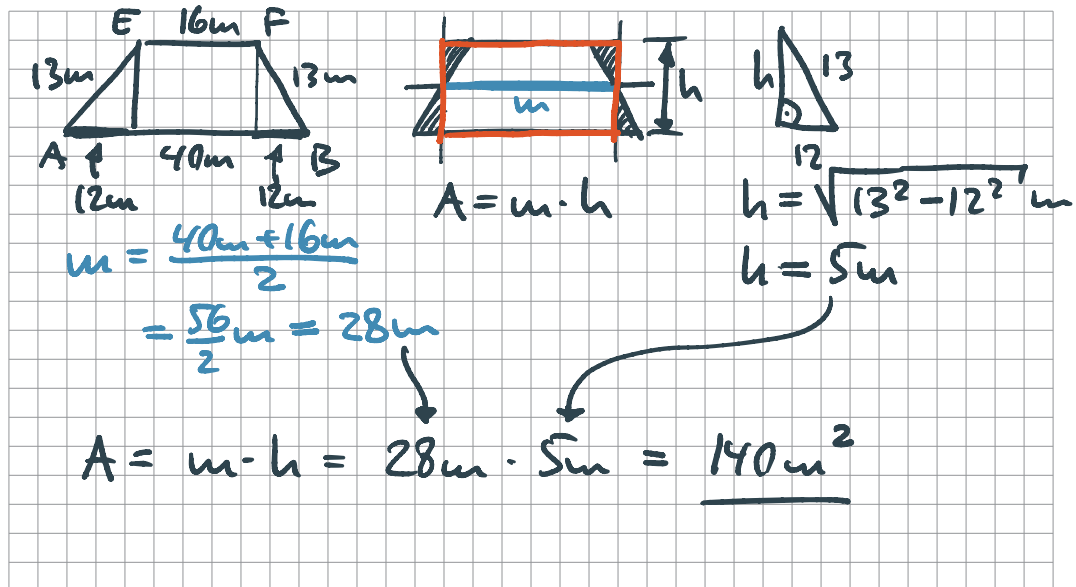 E 16m F
13m 13m
A 40m B
12m 12m
m
h
h 13
12
A = m · h
h = √(13² − 12²) m
h = 5m
m = (40m + 16m)/2
= 56/2 m = 28m
A = m · h = 28m · 5m = 140m²